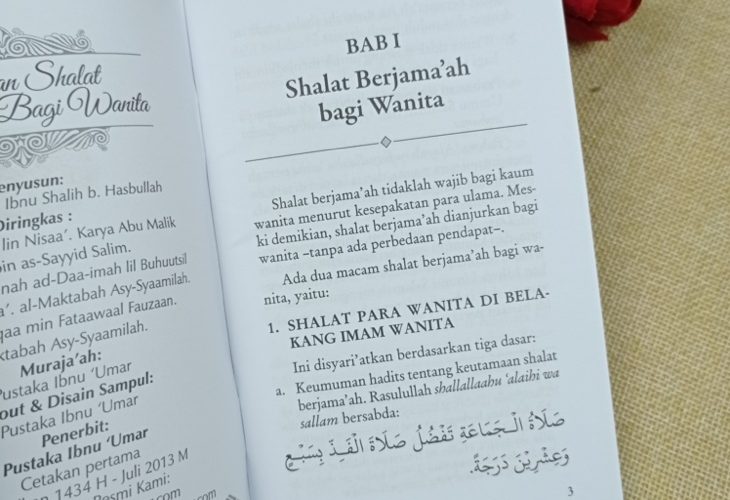 an Shalat
Bagi Wanita
enyusun:
Ibnu Shalih b. Hasbullah
Diringkas :
lin Nisaa’. Karya Abu Malik
bin as-Sayyid Salim.
nah ad-Daa-imah lil Buhuutsil
a’. al-Maktabah Asy-Syaamilah.
qaa min Fataawaal Fauzaan.
ktabah Asy-Syaamilah.
Muraja’ah:
Pustaka Ibnu ‘Umar
out & Disain Sampul:
Pustaka Ibnu ‘Umar
Penerbit:
Pustaka Ibnu ‘Umar
Cetakan pertama
1434 H - Juli 2013 M
Resmi Kami:
BAB I
Shalat Berjama’ah
bagi Wanita
Shalat berjama’ah tidaklah wajib bagi kaum
wanita menurut kesepakatan para ulama. Mes-
ki demikian, shalat berjama’ah dianjurkan bagi
wanita –tanpa ada perbedaan pendapat–.
Ada dua macam shalat berjama’ah bagi wa-
nita, yaitu:
1. SHALAT PARA WANITA DI BELA-
KANG IMAM WANITA
Ini disyari’atkan berdasarkan tiga dasar:
a. Keumuman hadits tentang keutamaan shalat
berjama’ah. Rasulullah shallallaahu ‘alaihi wa
sallam bersabda:
صَلَاةُ الْجَمَاعَةِ تَفْضُلُ صَلَاةَ الْفَذِّ بِسَبْعٍ
وَعِشْرِيْنَ دَرَجَةً.
3